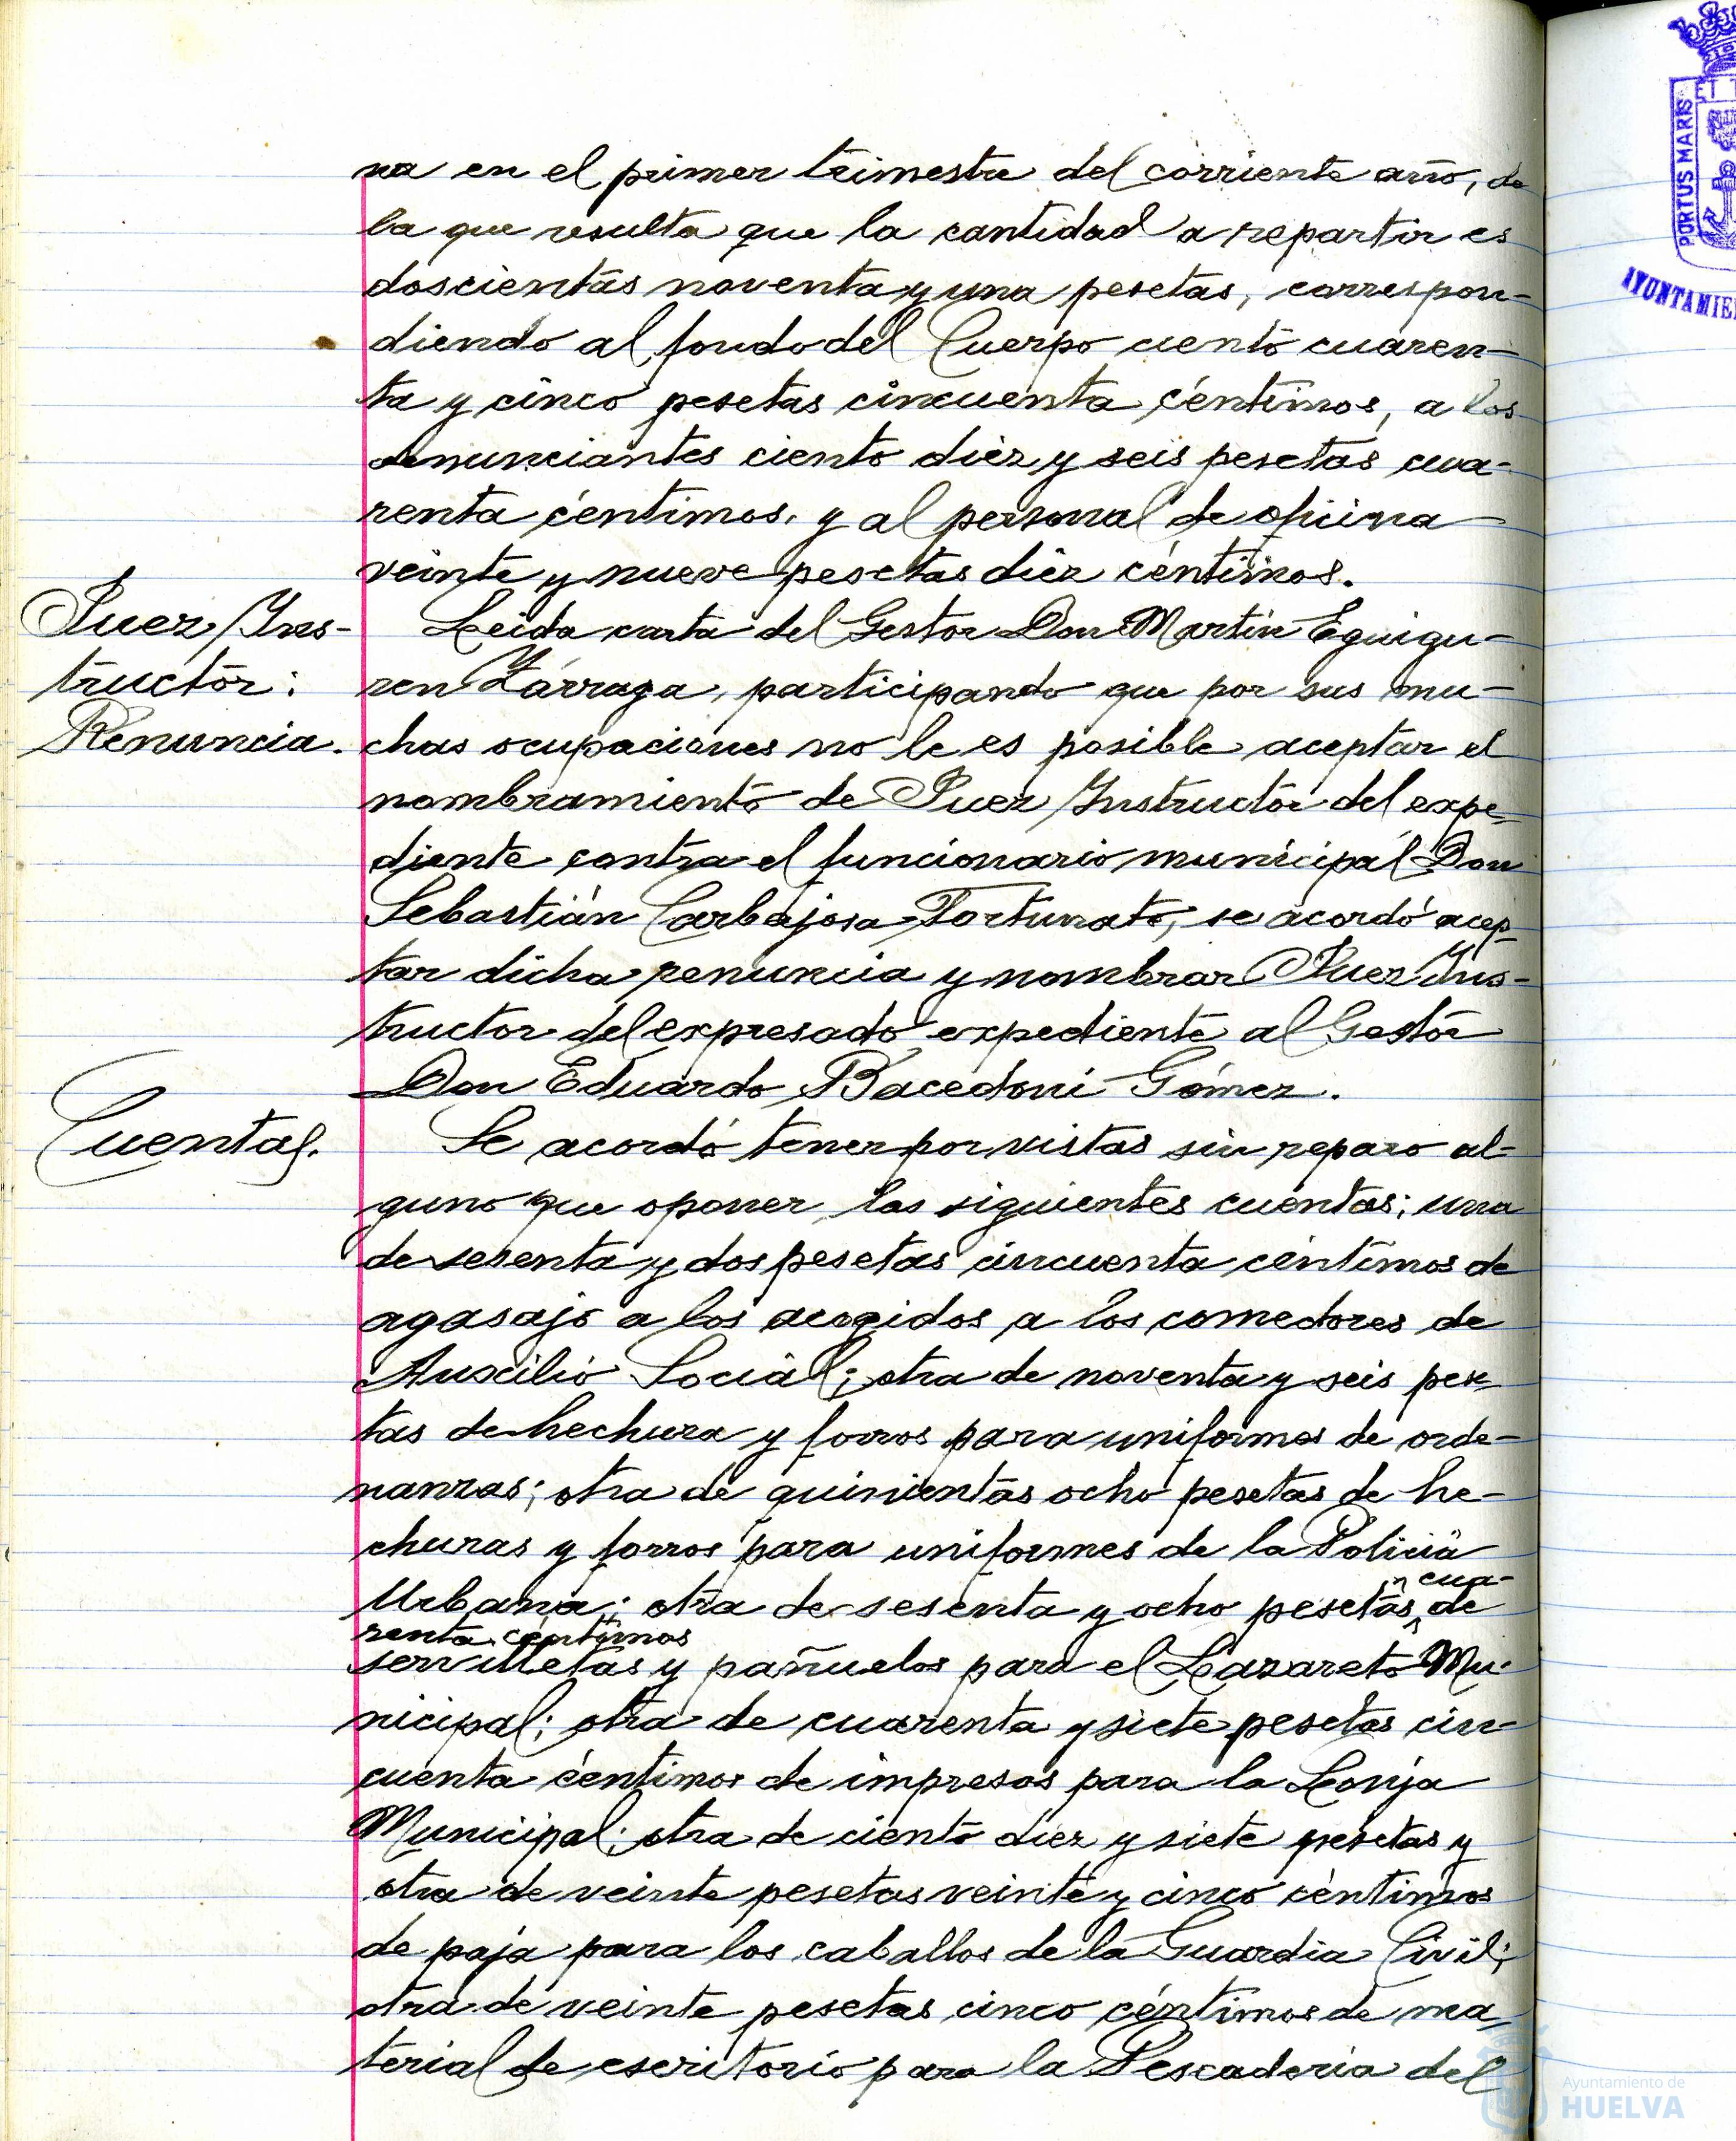 na en el primer trimestre del corriente año, de
la que resulta que la cantidad a repartir es
doscientas noventa y una pesetas, correspon-
diendo al fondo del Cuerpo ciento cuaren-
ta y cinco pesetas cincuenta céntimos, a los
denunciantes ciento diez y seis pesetas cua-
renta céntimos, y al personal de oficina
veinte y nueve pesetas diez céntimos.
Juez Ins-
tructor:
Renuncia.
Leida carta del Gestor Don Martín Eguigu-
ren Zárraga, participando que por sus mu-
chas ocupaciones no le es posible aceptar el
nombramiento de Juez Instructor del expe-
diente contra el funcionario municipal Don
Sebastián Carbajosa Fortunato, se acordó acep-
tar dicha renuncia y nombrar Juez Ins-
tructor del expresado expediente al Gestor
Don Eduardo Bacedoni Gómez.
Cuentas.
Se acordó tener por vistas sin reparo al-
guno que oponer las siguientes cuentas: una
de sesenta y dos pesetas cincuenta céntimos de
agasajo a los acogidos a los comedores de
Auxilio Social; otra de noventa y seis pese-
tas de hechura y forros para uniformes de orde-
nanzas; otra de quinientas ocho pesetas de he-
churas y forros para uniformes de la Policía
Urbana; otra de sesenta y ocho pesetas cua-
renta céntimos de
servilletas y pañuelos para el Lazareto Mu-
nicipal; otra de cuarenta y siete pesetas cin-
cuenta céntimos de impresos para la Lonja
Municipal; otra de ciento diez y siete pesetas y
otra de veinte pesetas veinte y cinco céntimos
de paja para los caballos de la Guardia Civil;
otra de veinte pesetas cinco céntimos de ma-
terial de escritorio para la Pescaderia del
PORTUS MARIS
AYUNTAMIE
Ayuntamiento de
HUELVA